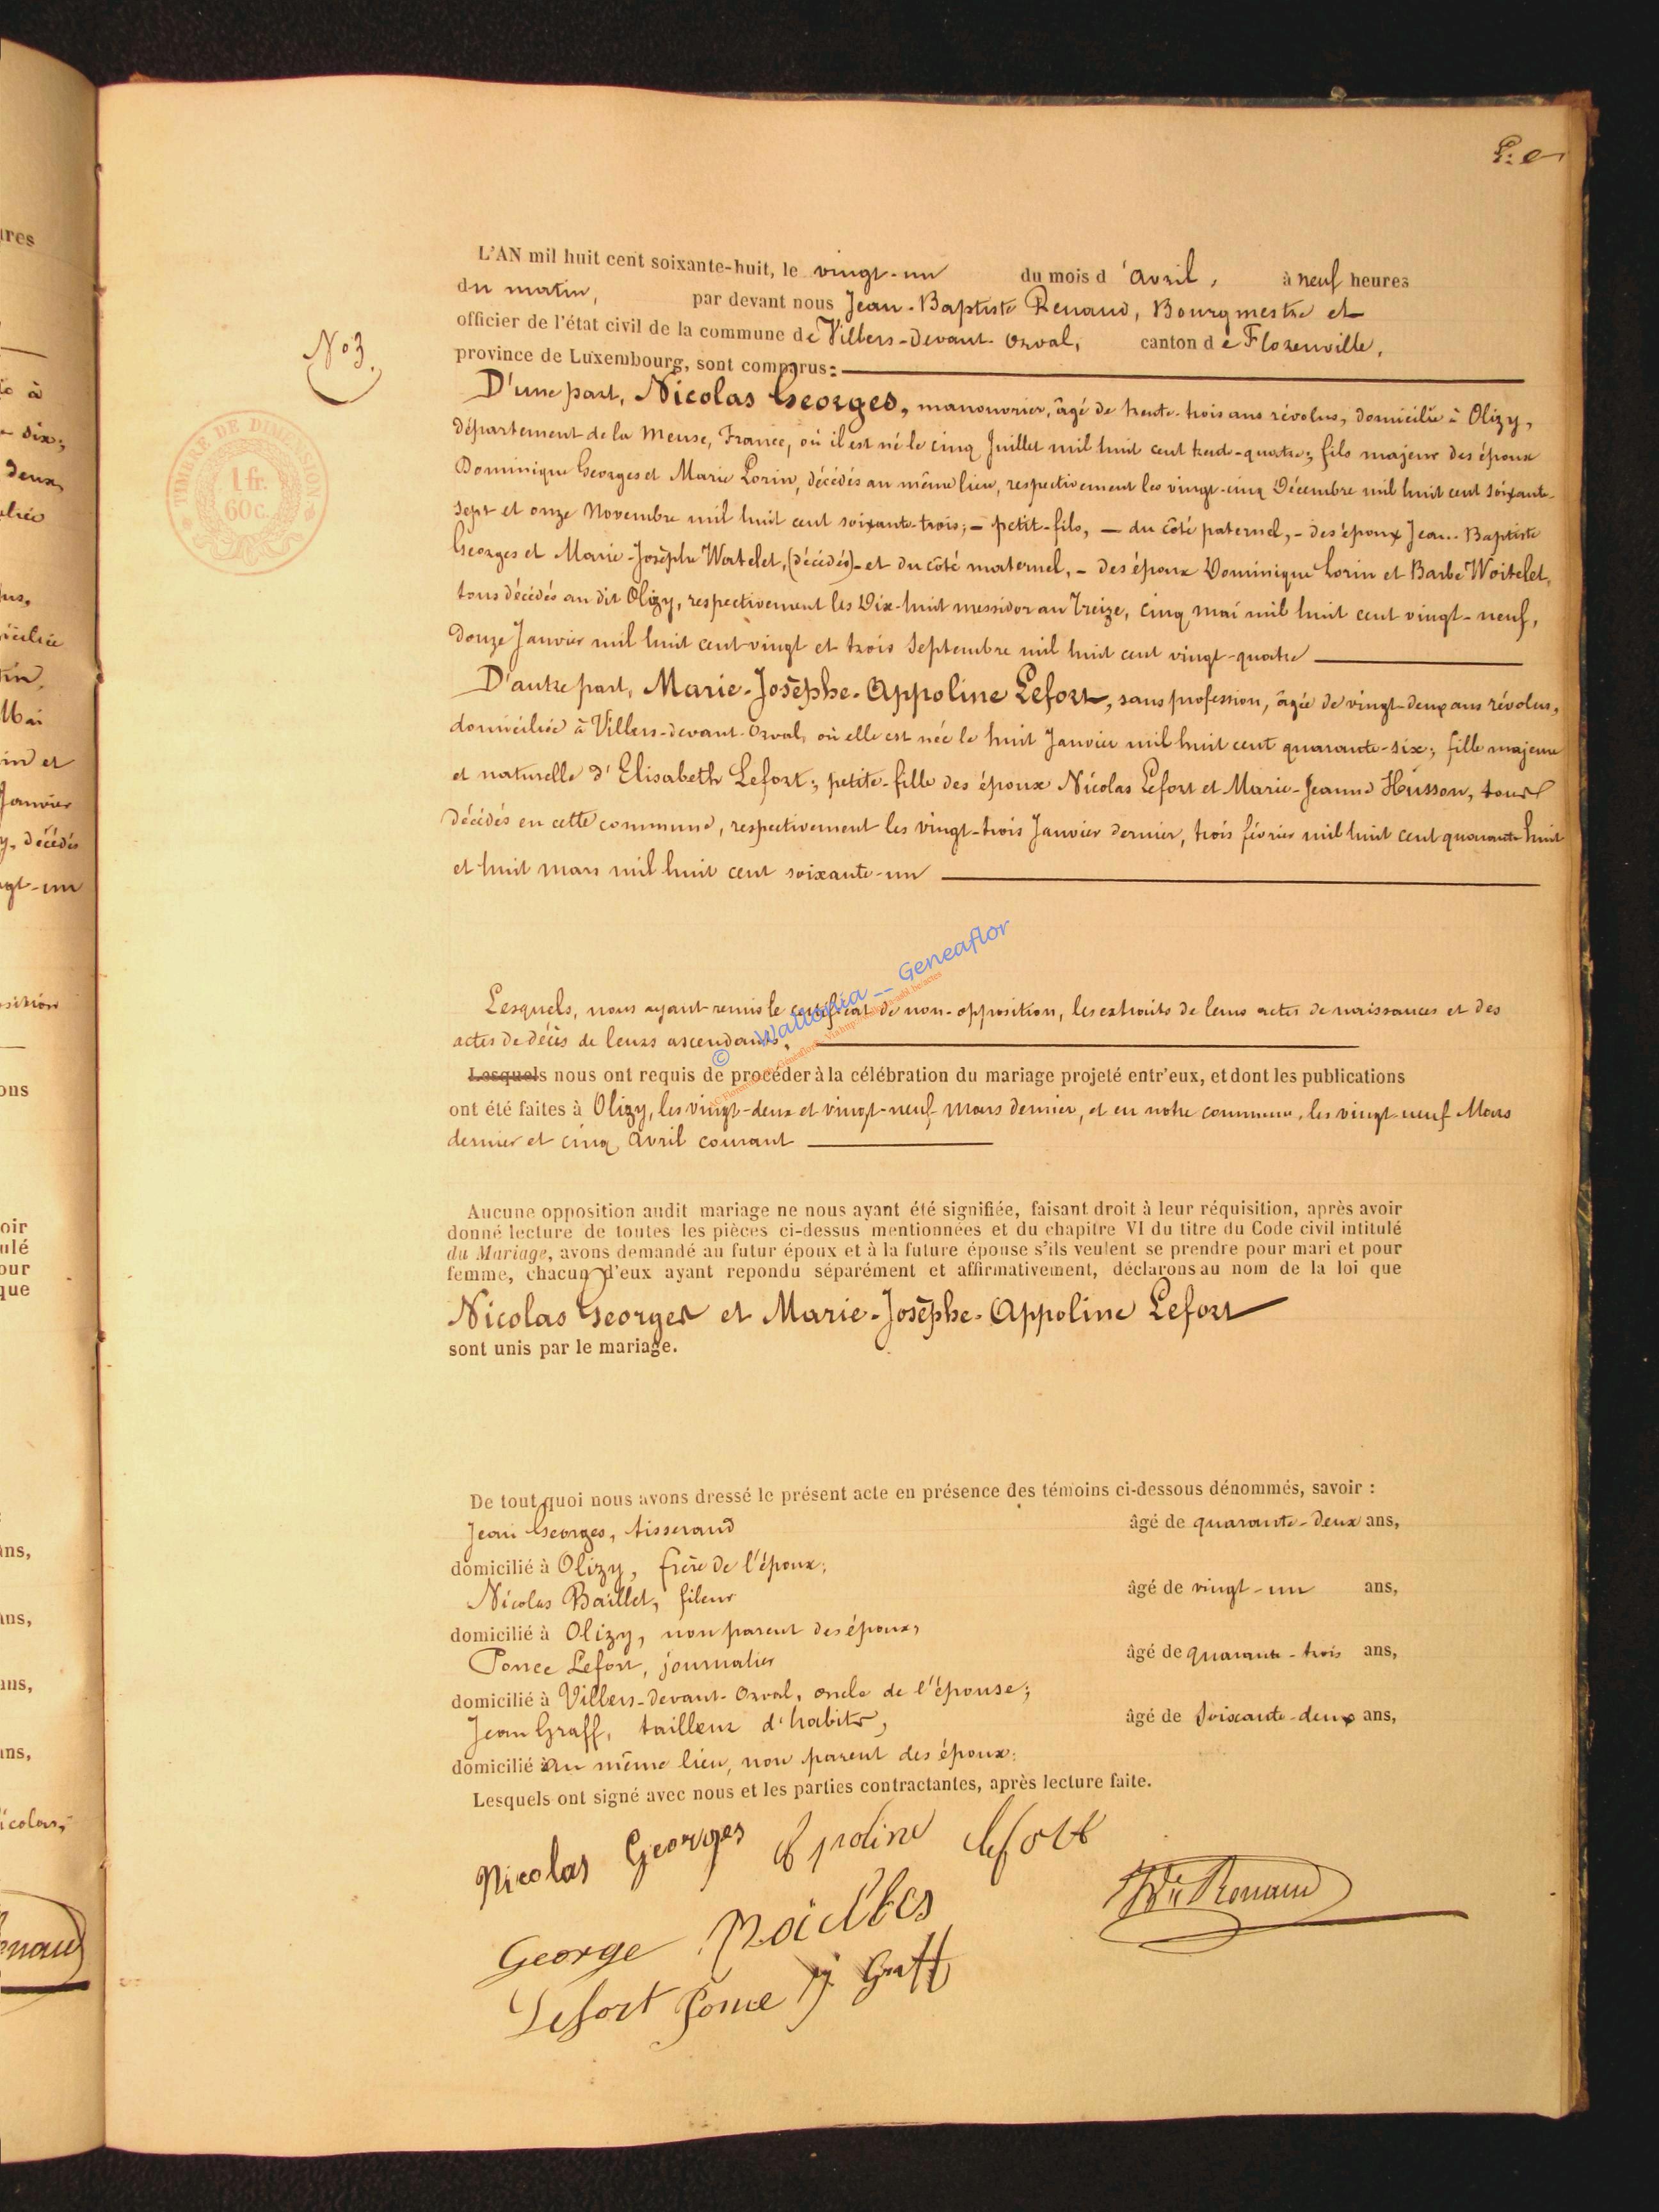 N° 3.
TIMBRE DE DIMENSION
1 fr.
60 c.
L'AN mil huit cent soixante-huit, le vingt-un du mois d'avril, à neuf heures
du matin, par devant nous Jean-Baptiste Renaud, Bourgmestre et
officier de l'état civil de la commune de Villers-devant-Orval, canton de Florenville,
province de Luxembourg, sont comparus:
D'une part, Nicolas Georges, manouvrier, âgé de trente-trois ans révolus, domicilié à Olizy,
département de la Meuse, France, où il est né le cinq Juillet mil huit cent trente-quatre; fils majeur des époux
Dominique Georges et Marie Lorin, décédés au même lieu, respectivement les vingt-cinq Décembre mil huit cent soixante-
sept et onze Novembre mil huit cent soixante-trois; - petit-fils, - du côté paternel, - des époux Jean-Baptiste
Georges et Marie-Josèphe Watelet, (décédés) - et du côté maternel, - des époux Dominique Lorin et Barbe Woitelet,
tous décédés au dit Olizy, respectivement les Dix-huit messidor an Treize, cinq mai mil huit cent vingt-neuf,
douze Janvier mil huit cent vingt et trois Septembre mil huit cent vingt-quatre
D'autre part, Marie-Josèphe-Appoline Lefort, sans profession, âgée de vingt-deux ans révolus,
domiciliée à Villers-devant-Orval, où elle est née le huit Janvier mil huit cent quarante-six; fille majeure
et naturelle d'Elisabeth Lefort; petite-fille des époux Nicolas Lefort et Marie-Jeanne Husson, tous
décédés en cette commune, respectivement les vingt-trois Janvier dernier, trois février mil huit cent quarante-huit
et huit mars mil huit cent soixante-un
© Wallonia -- Geneaflor
Lesquels, nous ayant remis le certificat de non-opposition, les extraits de leurs actes de naissances et des
actes de décès de leurs ascendants,
Lesquels nous ont requis de procéder à la célébration du mariage projeté entr'eux, et dont les publications
ont été faites à Olizy, les vingt-deux et vingt-neuf Mars dernier, et en notre commune, les vingt-neuf Mars
dernier et cinq avril courant
Aucune opposition audit mariage ne nous ayant été signifiée, faisant droit à leur réquisition, après avoir
donné lecture de toutes les pièces ci-dessus mentionnées et du chapitre VI du titre du Code civil intitulé
du Mariage, avons demandé au futur époux et à la future épouse s'ils veulent se prendre pour mari et pour
femme, chacun d'eux ayant repondu séparément et affirmativement, déclarons au nom de la loi que
Nicolas Georges et Marie-Josèphe-Appoline Lefort
sont unis par le mariage.
De tout quoi nous avons dressé le présent acte en présence des témoins ci-dessous dénommés, savoir :
Jean Georges, tisserand âgé de quarante-deux ans,
domicilié à Olizy, frère de l'époux;
Nicolas Baillet, fileur âgé de vingt-un ans,
domicilié à Olizy, non parent des époux,
Ponce Lefort, journalier âgé de quarante-trois ans,
domicilié à Villers-devant-Orval, oncle de l'épouse;
Jean Graff, tailleur d'habits, âgé de soixante-deux ans,
domicilié au même lieu, non parent des époux.
Lesquels ont signé avec nous et les parties contractantes, après lecture faite.
Nicolas Georges lefort
Renaud
George
Lefort Ponce J Graff